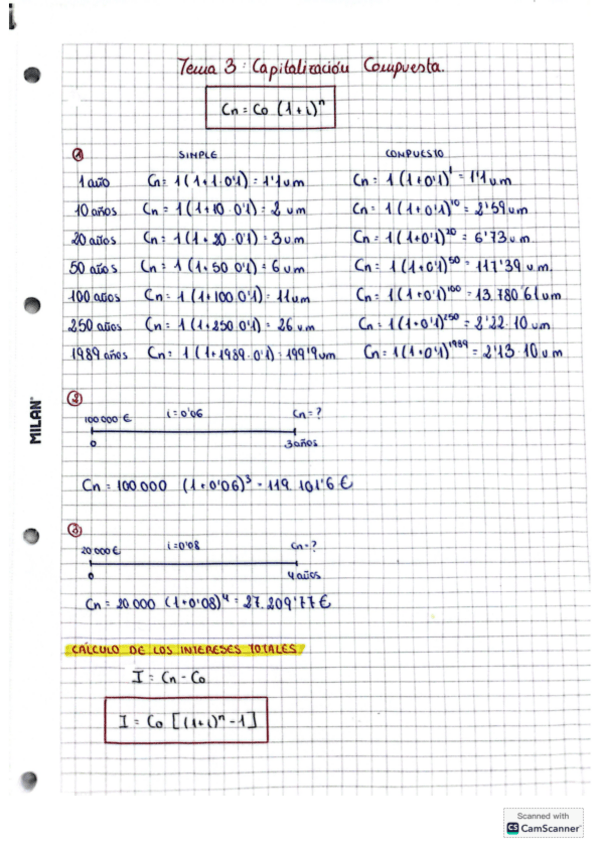 Tema 3: Capitalización Compuesta.
Cn = Co (1+i)ⁿ
① SIMPLE COMPUESTO
1 año Cn = 1(1+1·0'1) = 1'1 um Cn = 1(1+0'1)¹ = 1'1 um
10 años Cn = 1(1+10·0'1) = 2 um Cn = 1(1+0'1)¹⁰ = 2'59 um
20 años Cn = 1(1+20·0'1) = 3 um Cn = 1(1+0'1)²⁰ = 6'73 um.
50 años Cn = 1(1+50·0'1) = 6 um Cn = 1(1+0'1)⁵⁰ = 117'39 um.
100 años Cn = 1(1+100·0'1) = 11 um Cn = 1(1+0'1)¹⁰⁰ = 13.780'61 um
250 años Cn = 1(1+250·0'1) = 26 um Cn = 1(1+0'1)²⁵⁰ = 2'22·10 um
1989 años Cn = 1(1+1989·0'1) = 199'9 um Cn = 1(1+0'1)¹⁹⁸⁹ = 2'13·10 um
②
100000 € i = 0'06 Cn = ?
0 3 años
Cn = 100.000 (1+0'06)³ = 119.101'6 €
③
20000 € i = 0'08 Cn = ?
0 4 años
Cn = 20.000 (1+0'08)⁴ = 27.209'77 €
CÁLCULO DE LOS INTERESES TOTALES
I = Cn - Co
I = Co [(1+i)ⁿ - 1]
MILAN
Scanned with
CS CamScanner